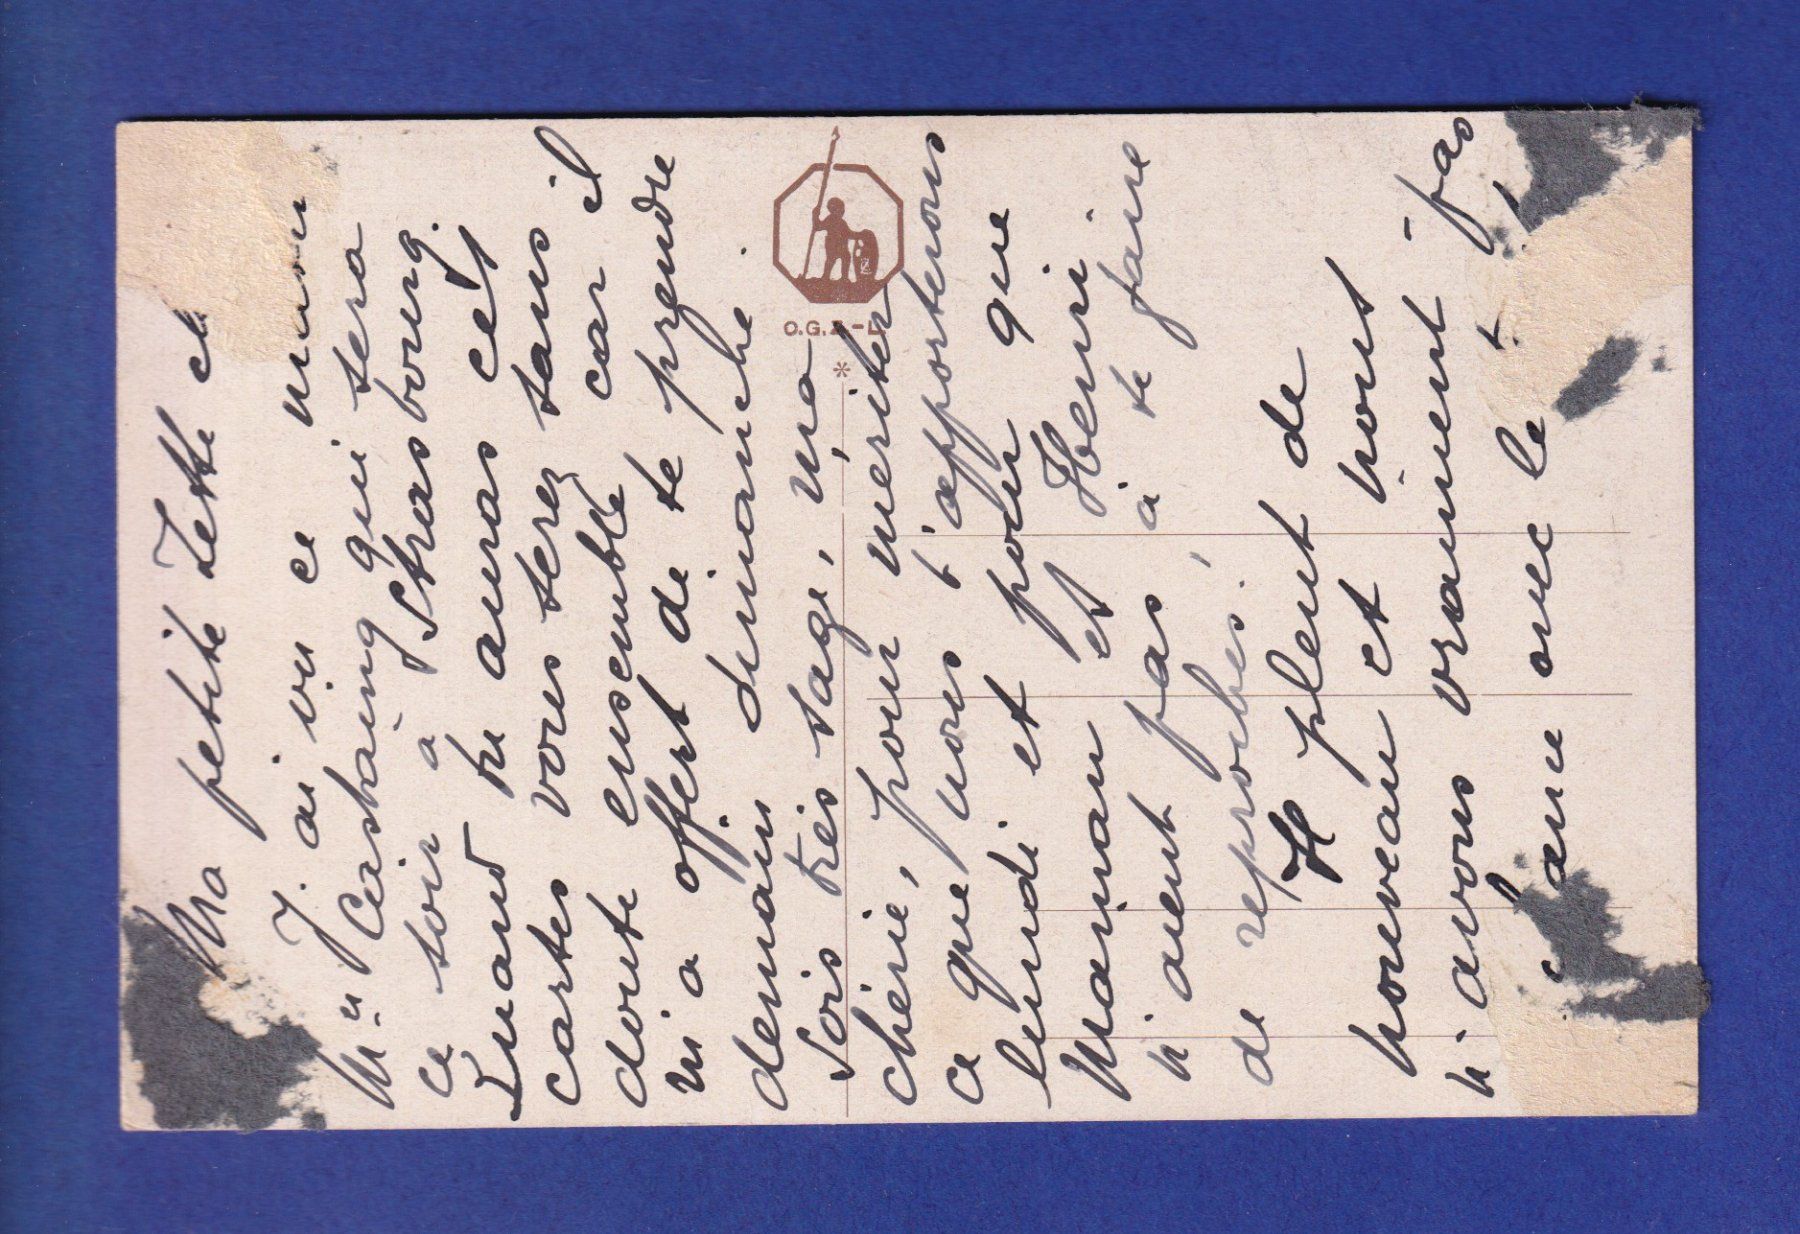 Ma petite Zette ch
J'ai vu ce
Mr Castaing qui sera
ce soir à Strasbourg.
Quand tu auras cet
cartes vous serez sans
doute ensemble car il
m'a offert de te prendre
demain dimanche.
Sois très sage, ma
chérie, pour mériter
ce que nous t'apporterons
lundi et pour que
Maman et Henri
n'aient pas à te faire
de reproches.
Il pleut de
nouveau et nous
n'avons vraiment pas
avec le
O.G.Z.-L.
*